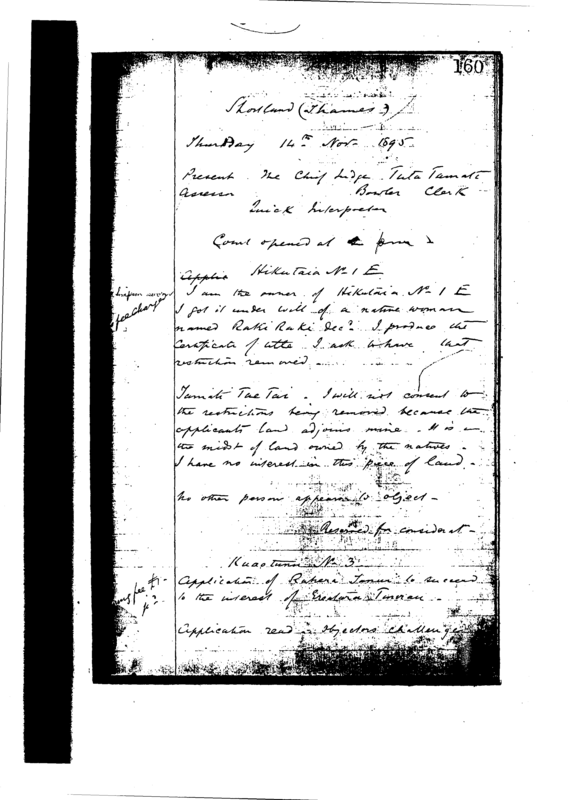 160
Shortland (Thames)
Thursday 14th Nov. 1895
Present The Chief Judge Tuta Tamati
Assessor Bowler Clerk
Quick Interpreter
Court opened at pm
Applic Hikutaia No 1 E
I am the owner of Hikutaia No 1 E
fee charge
I got it under will of a native woman
named Raki Raki decd. I produce the
Certificate of title I ask to have that
restriction removed
Tamati Tae Tai. I will not consent to
the restrictions being removed because the
applicants land adjoins mine. It is in
the midst of land owned by the natives.
I have no interest in this piece of land.
No other person appears to object -
Reserved for considerat -
Kuaotunu No 3
Application of to succeed
fee
to the interest of
Application read - Objectors challenged